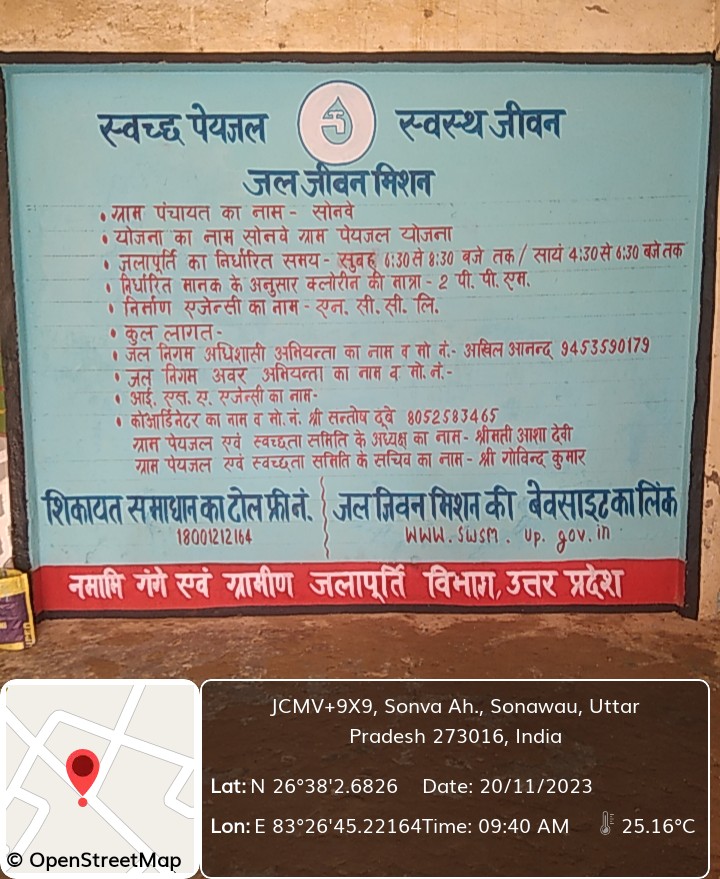 स्वच्छ पेयजल स्वस्थ जीवन
जल जीवन मिशन
• ग्राम पंचायत का नाम - सोनवे
• योजना का नाम सोनवे ग्राम पेयजल योजना
• जलापूर्ति का निर्धारित समय - सुबह 6:30 से 8:30 बजे तक / सायं 4:30 से 6:30 बजे तक
• निर्धारित मानक के अनुसार क्लोरीन की मात्रा - 2 पी. पी. एम.
• निर्माण एजेन्सी का नाम - एन. सी. सी. लि.
• कुल लागत -
• जल निगम अधिशासी अभियन्ता का नाम व मो नं. - अखिल आनन्द 9453590179
• जल निगम अवर अभियन्ता का नाम व मो. नं. -
• आई. एस. ए. एजेन्सी का नाम -
• कोआर्डिनेटर का नाम व मो. नं. श्री सन्तोष दूबे 8052583465
ग्राम पेयजल एवं स्वच्छता समिति के अध्यक्ष का नाम - श्रीमती आशा देवी
ग्राम पेयजल एवं स्वच्छता समिति के सचिव का नाम - श्री गोविन्द कुमार
शिकायत समाधान का टोल फ्री नं. जल जिवन मिशन की बेवसाइट का लिंक
18001212164 www.swsm.up.gov.in
नमामि गंगे एवं ग्रामीण जलापूर्ति विभाग, उत्तर प्रदेश
JCMV+9X9, Sonva Ah., Sonawau, Uttar
Pradesh 273016, India
Lat: N 26°38'2.6826 Date: 20/11/2023
Lon: E 83°26'45.22164 Time: 09:40 AM 25.16°C
© OpenStreetMap